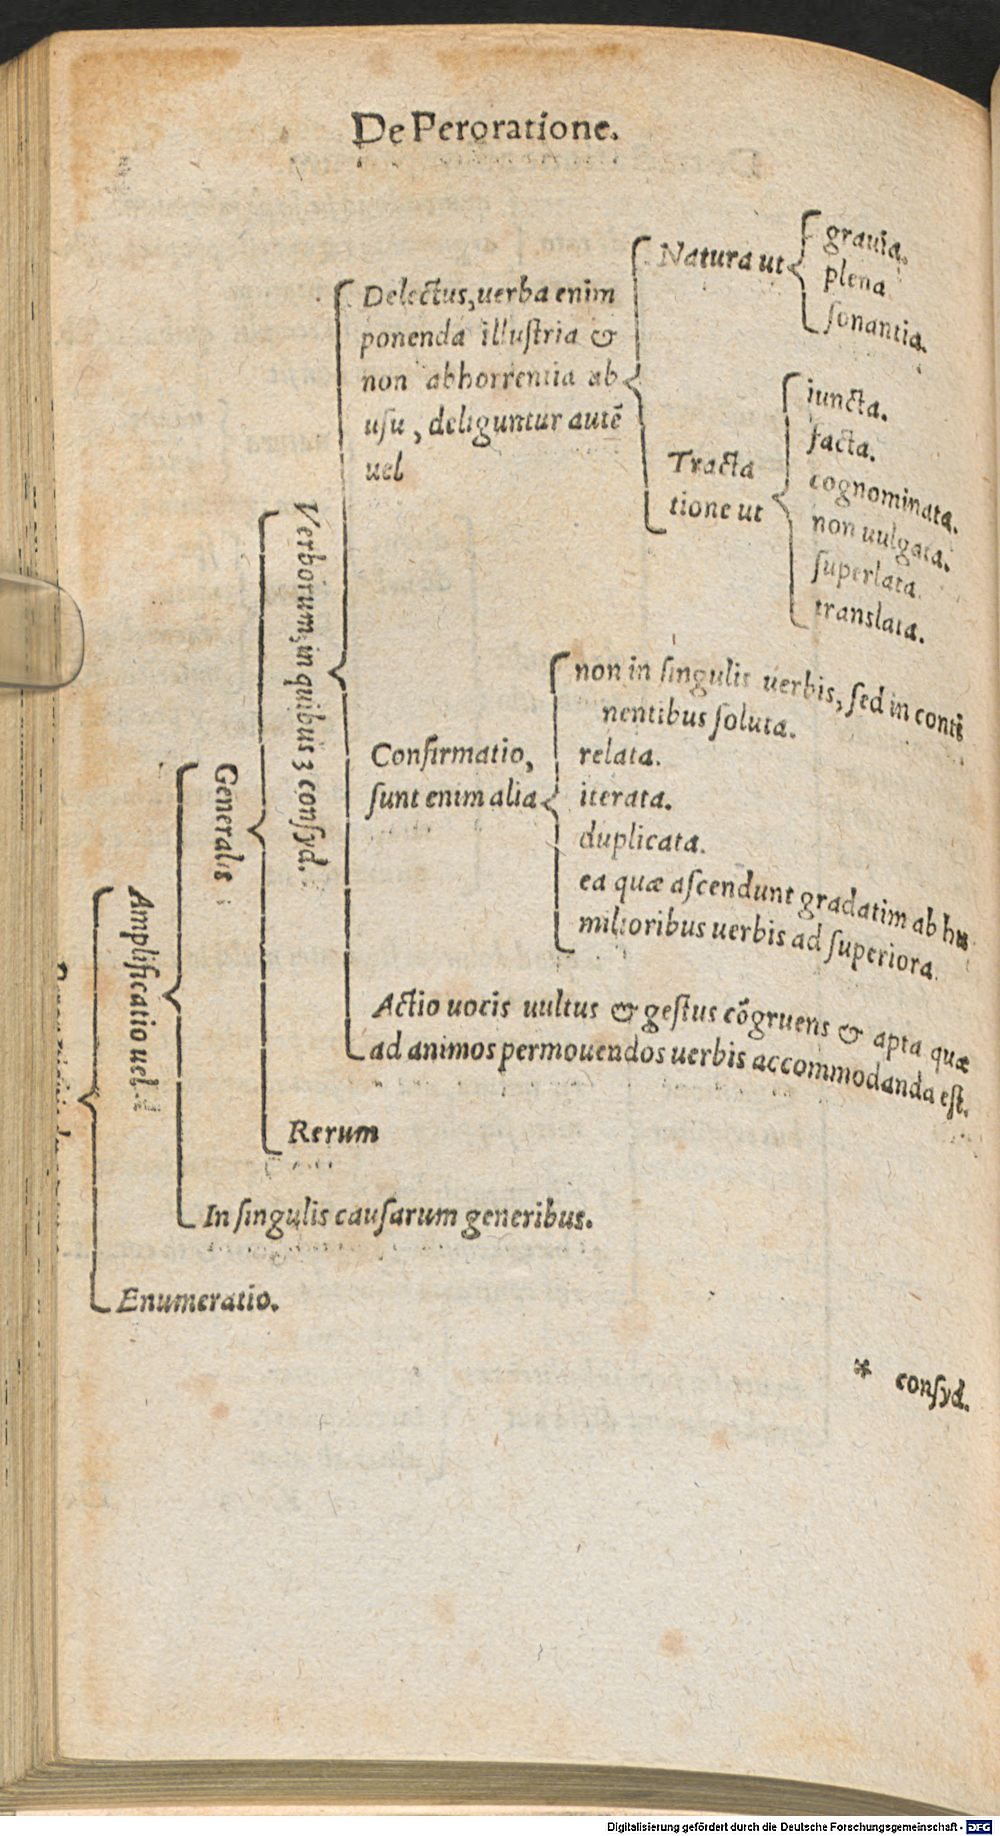 De Peroratione.
Delectus, uerba enim
ponenda illuſtria &
non abhorrentia ab
uſu, deliguntur autē
uel
Natura ut
grauia.
plena
ſonantia.
Tracta
tione ut
iuncta.
facta.
cognominata.
non uulgata.
ſuperlata.
translata.
Verborum, in quibus 3 conſyd.
Confirmatio,
ſunt enim alia
non in ſingulis uerbis, ſed in conti
nentibus ſoluta.
relata.
iterata.
duplicata.
ea quæ aſcendunt gradatim ab hu
milioribus uerbis ad ſuperiora.
Actio uocis uultus & geſtus cōgruens & apta quæ
ad animos permouendos uerbis accommodanda eſt.
Generalis
Rerum
Amplificatio uel
In ſingulis cauſarum generibus.
Enumeratio.
* conſyd.
Digitalisierung gefördert durch die Deutsche Forschungsgemeinschaft - DFG